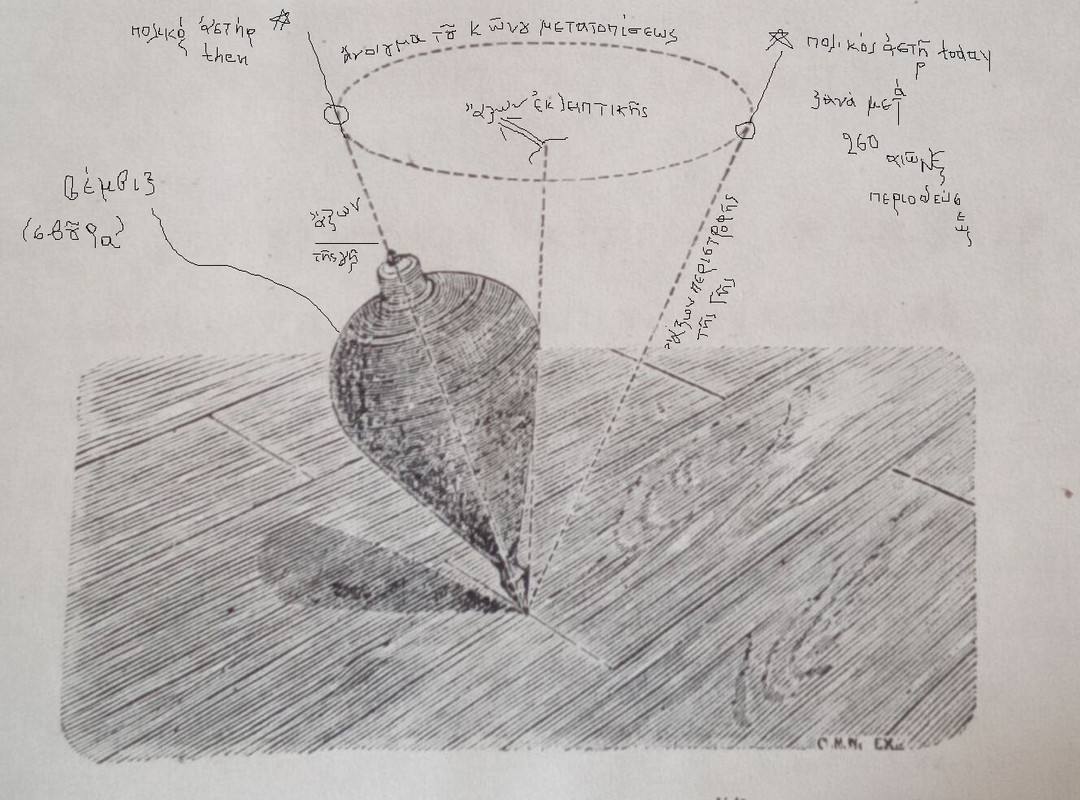 πολικό
ς ἀστήρ
then
ἄνοιγμα τȣ͂ κώνȣ μετατοπίσεως
πολικός ἀστῆ
ρ
today
ξανά μετ
ά
260
αἰῶνες
περιοδεύσ
εως
ἄξων ἐκλειπτικῆς
βέμβιξ
(σβȣ͂ρα)
ἄξων
τῆς γῆς
ἄξων περιστροφῆς
τῆς Γῆς